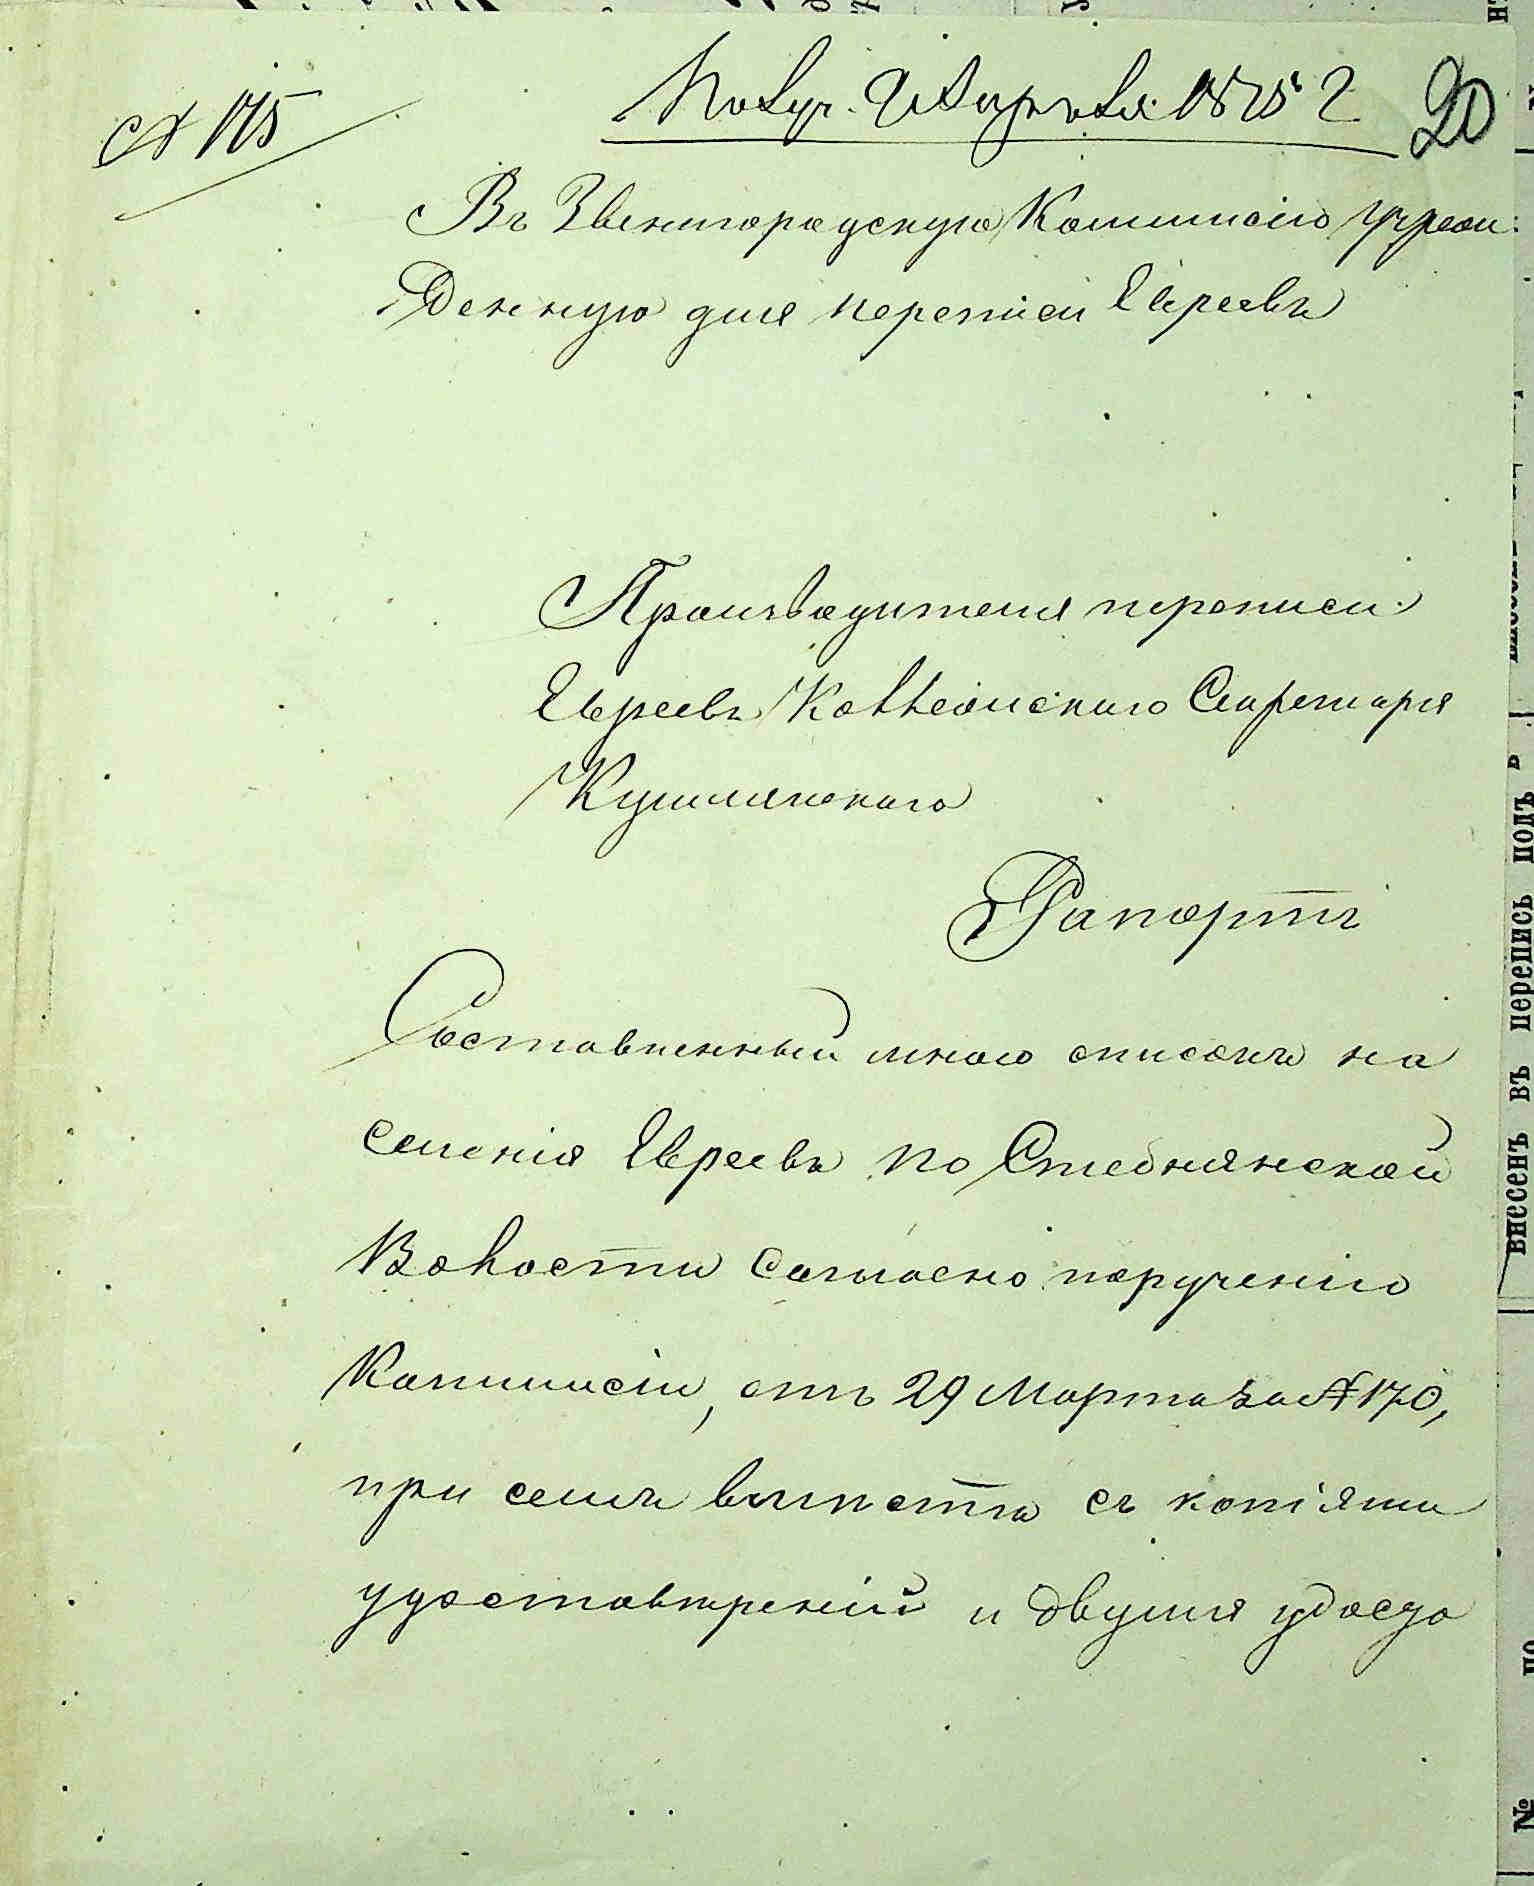 № 175
Получ. Апреля 1875 г
20
Въ Звенигородскую Коммисію учреж:
денную для переписи Евреевъ
Производителя переписи
Евреевъ Коллежскаго Секретаря
Кушлянскаго
Рапортъ
Составленный мною списокъ на
селенія Евреевъ по Стебнянской
Волости согласно порученію
Коммисіи, отъ 29 Марта за № 170,
при семъ вместѣ съ копіями
удостовѣреній и двумя удосто
внесенъ въ перепись подъ
по
№